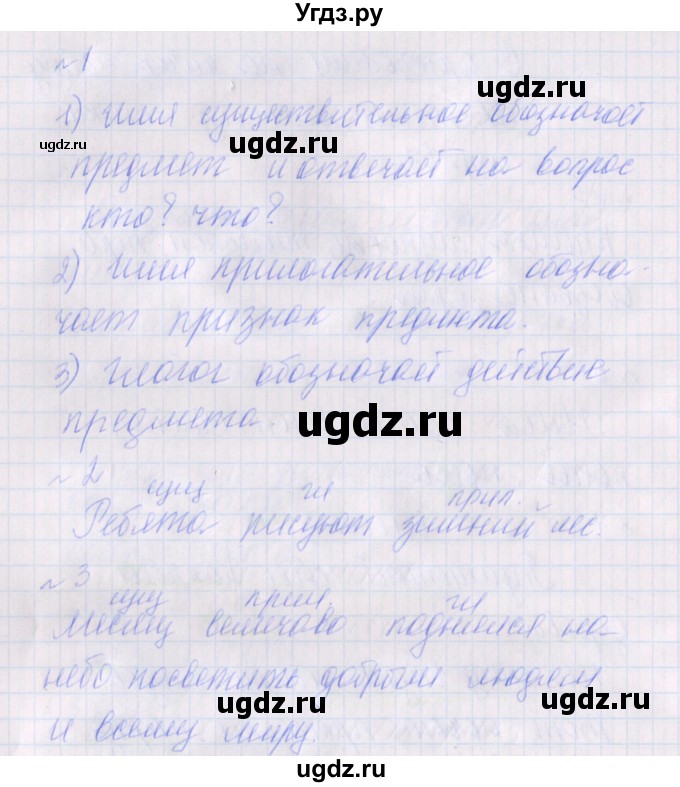 Угдз.ру
№1
1) Имя существительное обозначает
предмет и отвечает на вопрос
кто? что?
2) Имя прилагательное обозна-
чает признак предмета.
3) Глагол обозначает действие
предмета.
№2
сущ гл прил.
Ребята рисуют зимний лес.
№3
сущ прил. гл
Месяц величаво поднялся на
небо посветить добрым людям
и всему миру.
ugdz.ru
ugdz.ru
ugdz.ru
ugdz.ru
ugdz.ru
ugdz.ru
ugdz.ru
ugdz.ru
ugdz.ru